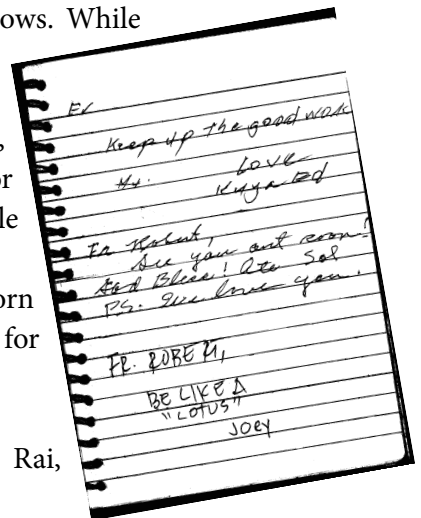 ows. While
,
or
le
orn
for
Rai,
Fr
Keep up the good work
Love
Kuya Ed
Fr. Robert,
See you
God Bless! Ate Sol
PS. We love you.
FR. ROBERT,
BE LIKE A
"LOTUS"
JOEY